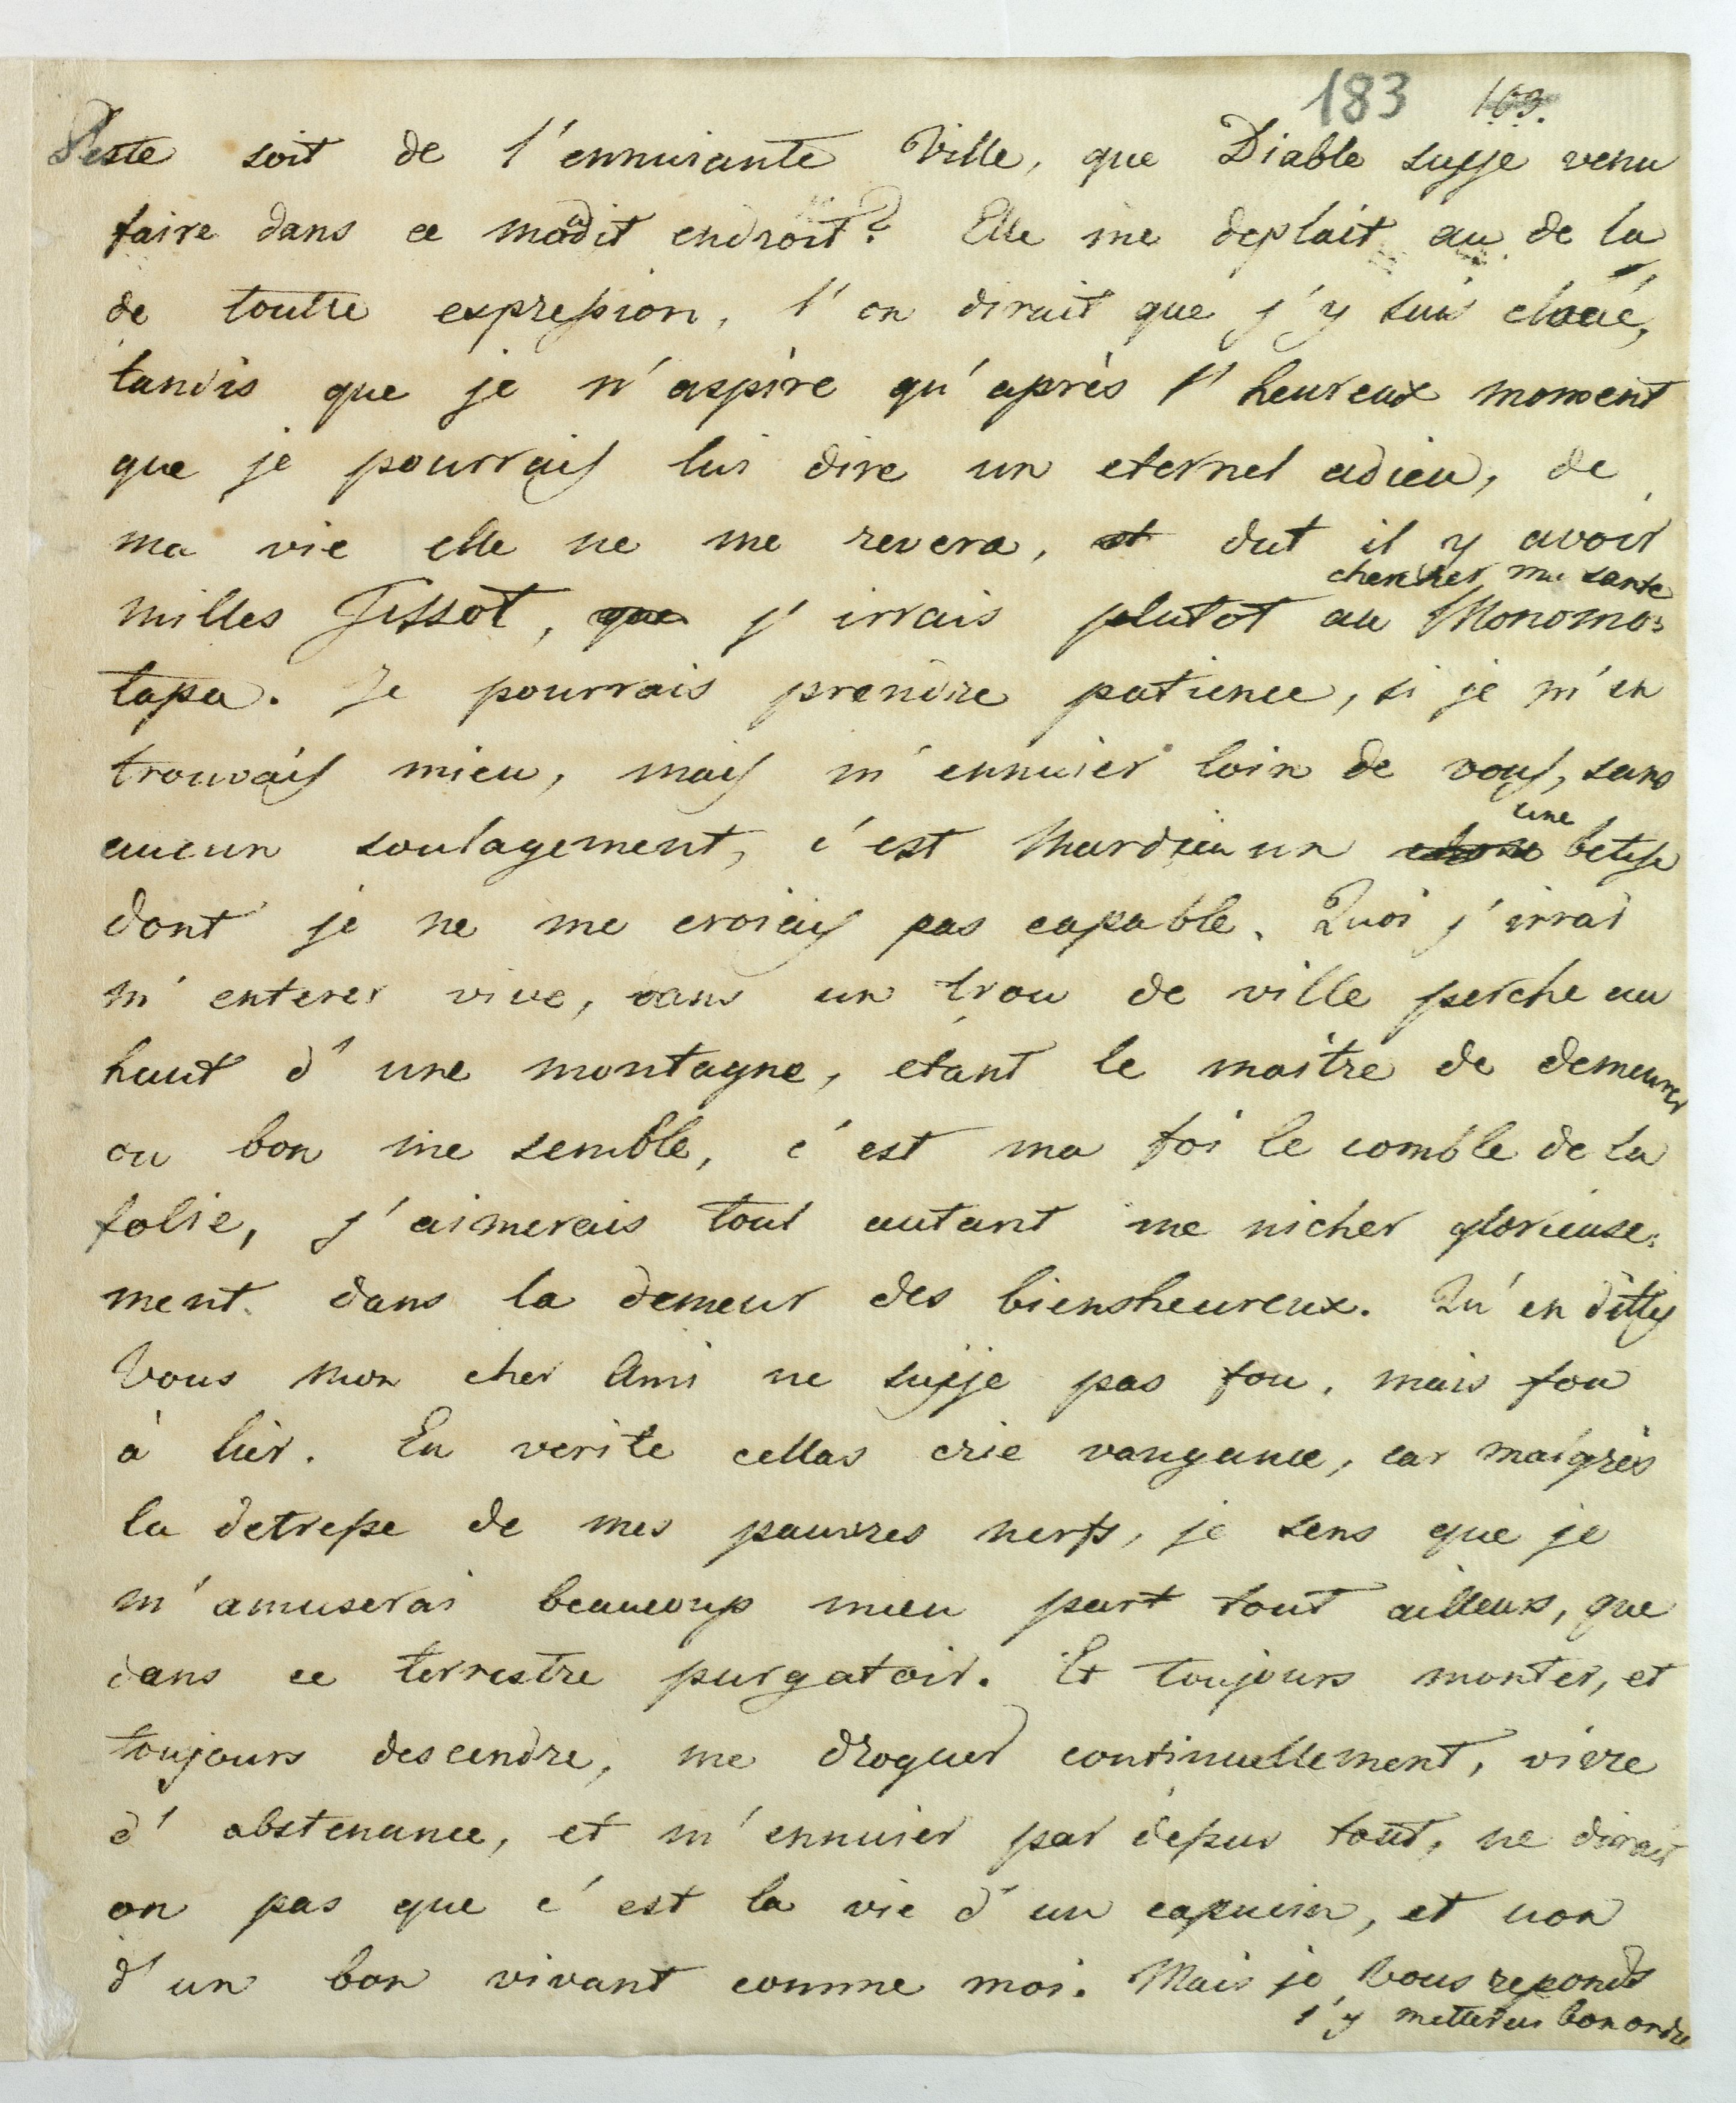 183 163.
Peste soit de l'ennuiante Ville, que Diable suije venu
faire dans ce modit endroit? Elle me deplait au de la
de toutte expression, l'on dirait que j'y suis cloué,
tandis que je n'aspire qu'après l'heureux moment
que je pourrais lui dire un eternel adieu, de
ma vie elle ne me revera, et dut il y avoir
chercher ma sante
milles Tissot, que j'irrais plutot au Monomo=
tapa. Je pourrais prendre patience, si je m'en
trouvais mieu, mais m'ennuier loin de vous, sans
une
aucun soulagement, c'est Mardieu un chose betise
dont je ne me croiais pas capable. Quoi j'irrai
m'enterer vive, dans un trou de ville perche au
haut d'une montagne, etant le maitre de demeurer
ou bon me semble, c'est ma foi le comble de la
folie, j'aimerais tout autant me nicher glorieuse=
ment dans la demeur des biensheureux. Qu'en dittes
Vous mon cher Ami ne suije pas fou, mais fou
à lier. En verite cellas crie vangance, car malgrès
la detresse de mes pauvres nerfs, je sens que je
m'amuserai beaucoup mieu part tout ailleurs, que
dans ce terrestre purgatoir. Et toujours monter, et
toujours descendre, me droguer continuellement, vivre
d'abstenance, et m'ennuier par depus tout, ne dirait
on pas que c'est la vie d'un capucin, et non
d'un bon vivant comme moi. Mais je Vous reponds
j'y metterai bon ordre